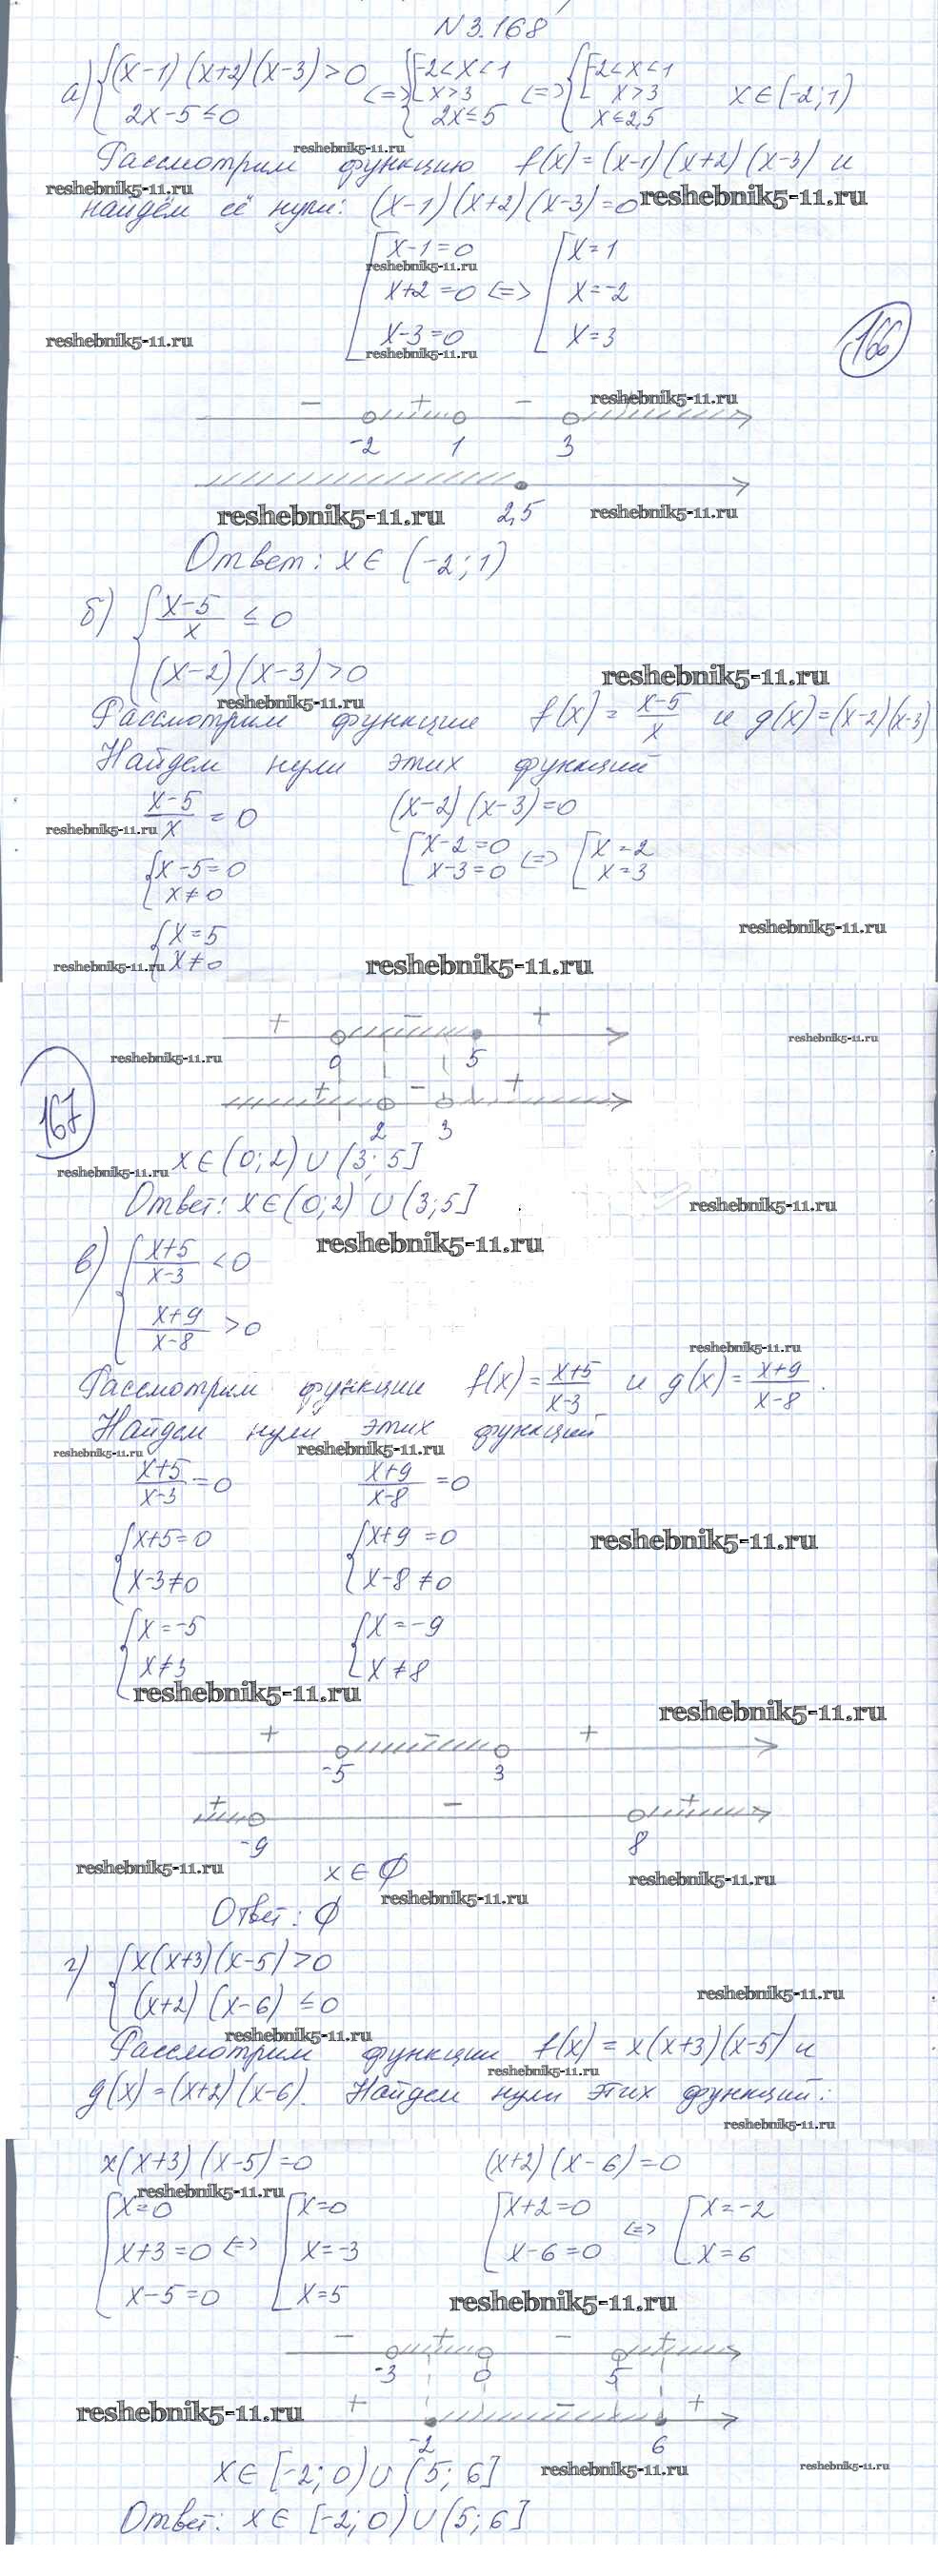 N 3.168
а) { (x-1)(x+2)(x-3)>0 <=> { [ -2<x<1 <=> { [ -2<x<1 x∈(-2;1)
x>3 x>3
2x-5≤0 2x≤5 x≤2,5
reshebnik5-11.ru
Рассмотрим функцию f(x)=(x-1)(x+2)(x-3) и
reshebnik5-11.ru
найдём её нули: (x-1)(x+2)(x-3)=0 reshebnik5-11.ru
[ x-1=0 [ x=1
reshebnik5-11.ru
x+2=0 <=> x=-2
x-3=0 x=3
reshebnik5-11.ru
reshebnik5-11.ru
166
reshebnik5-11.ru
- + -
-2 1 3
2,5
reshebnik5-11.ru reshebnik5-11.ru
Ответ: x∈(-2;1)
б) { (x-5)/x ≤ 0
(x-2)(x-3)>0
reshebnik5-11.ru
reshebnik5-11.ru
Рассмотрим функции f(x)=(x-5)/x и g(x)=(x-2)(x-3)
Найдем нули этих функций
(x-5)/x = 0 (x-2)(x-3)=0
reshebnik5-11.ru
{ x-5=0 [ x-2=0 <=> [ x=2
x≠0 x-3=0 x=3
{ x=5 reshebnik5-11.ru
x≠0
reshebnik5-11.ru reshebnik5-11.ru
+ - +
reshebnik5-11.ru
0 5
reshebnik5-11.ru
+ - +
167
2 3
x∈(0;2)∪(3;5]
reshebnik5-11.ru
Ответ: x∈(0;2)∪(3;5]
reshebnik5-11.ru
reshebnik5-11.ru
в) { (x+5)/(x-3) <0
(x+9)/(x-8) >0
reshebnik5-11.ru
Рассмотрим функции f(x)=(x+5)/(x-3) и g(x)=(x+9)/(x-8).
Найдем нули этих функций
reshebnik5-11.ru reshebnik5-11.ru
(x+5)/(x-3)=0 (x+9)/(x-8)=0
{ x+5=0 { x+9=0
reshebnik5-11.ru
x-3≠0 x-8≠0
{ x=-5 { x=-9
x≠3 x≠8
reshebnik5-11.ru
reshebnik5-11.ru
+ - +
-5 3
+ - +
-9 8
reshebnik5-11.ru x∈∅ reshebnik5-11.ru
reshebnik5-11.ru
Ответ: ∅
г) { x(x+3)(x-5)>0
(x+2)(x-6)≤0
reshebnik5-11.ru
reshebnik5-11.ru
Рассмотрим функции f(x)=x(x+3)(x-5) и
reshebnik5-11.ru
g(x)=(x+2)(x-6). Найдем нули этих функций:
reshebnik5-11.ru
x(x+3)(x-5)=0 (x+2)(x-6)=0
reshebnik5-11.ru
[ x=0 [ x=0 [ x+2=0 <=> [ x=-2
x+3=0 <=> x=-3 x-6=0 x=6
x-5=0 x=5
reshebnik5-11.ru
- + - +
-3 0 5
reshebnik5-11.ru
+ - +
-2 6
x∈[-2;0)∪(5;6] reshebnik5-11.ru reshebnik5-11.ru
Ответ: x∈[-2;0)∪(5;6]